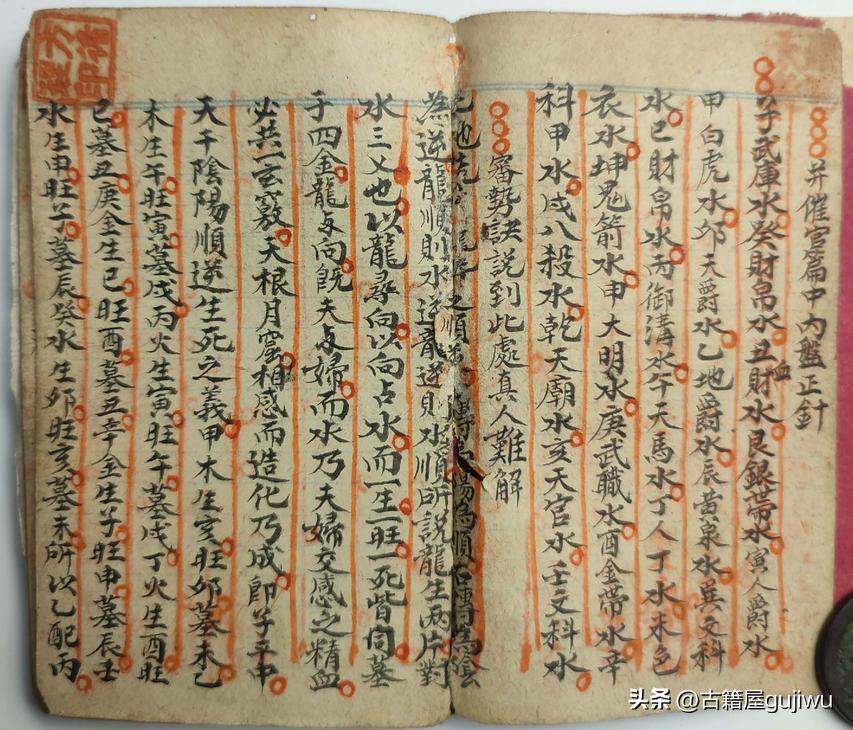 并催官篇中内盤正針
子武庫水癸財帛水丑血財水艮銀带水寅人爵水
甲白虎水卯天爵水乙地爵水辰黄泉水巽文科
水巳財帛水丙御溝水午天馬水丁人丁水未色
衣水坤鬼箭水申大明水庚武職水酉金带水辛
科甲水戌八殺水乾天廟水亥天官水壬文科水
審勢訣説到此處真人難解
之順逆 陽為順右轉為陰
為逆龍順則水逆龍逆則水順所説龍生两片對
水三义也以龍尋向以向占水而一生一旺一死皆同墓
于四金龍与向既夫与婦而水乃夫婦交感之精血
必共一玄竅天根月窟相感而造化乃成即芓平中
天干陰陽順逆生死之義甲木生亥旺卯墓未乙
木生午旺寅墓戌丙火生寅旺午墓戌丁火生酉旺
巳墓丑庚金生巳旺酉墓丑辛金生子旺申墓辰壬
水生申旺子墓辰癸水生卯旺亥墓未所以乙配丙
头条 @古籍屋gujiwu